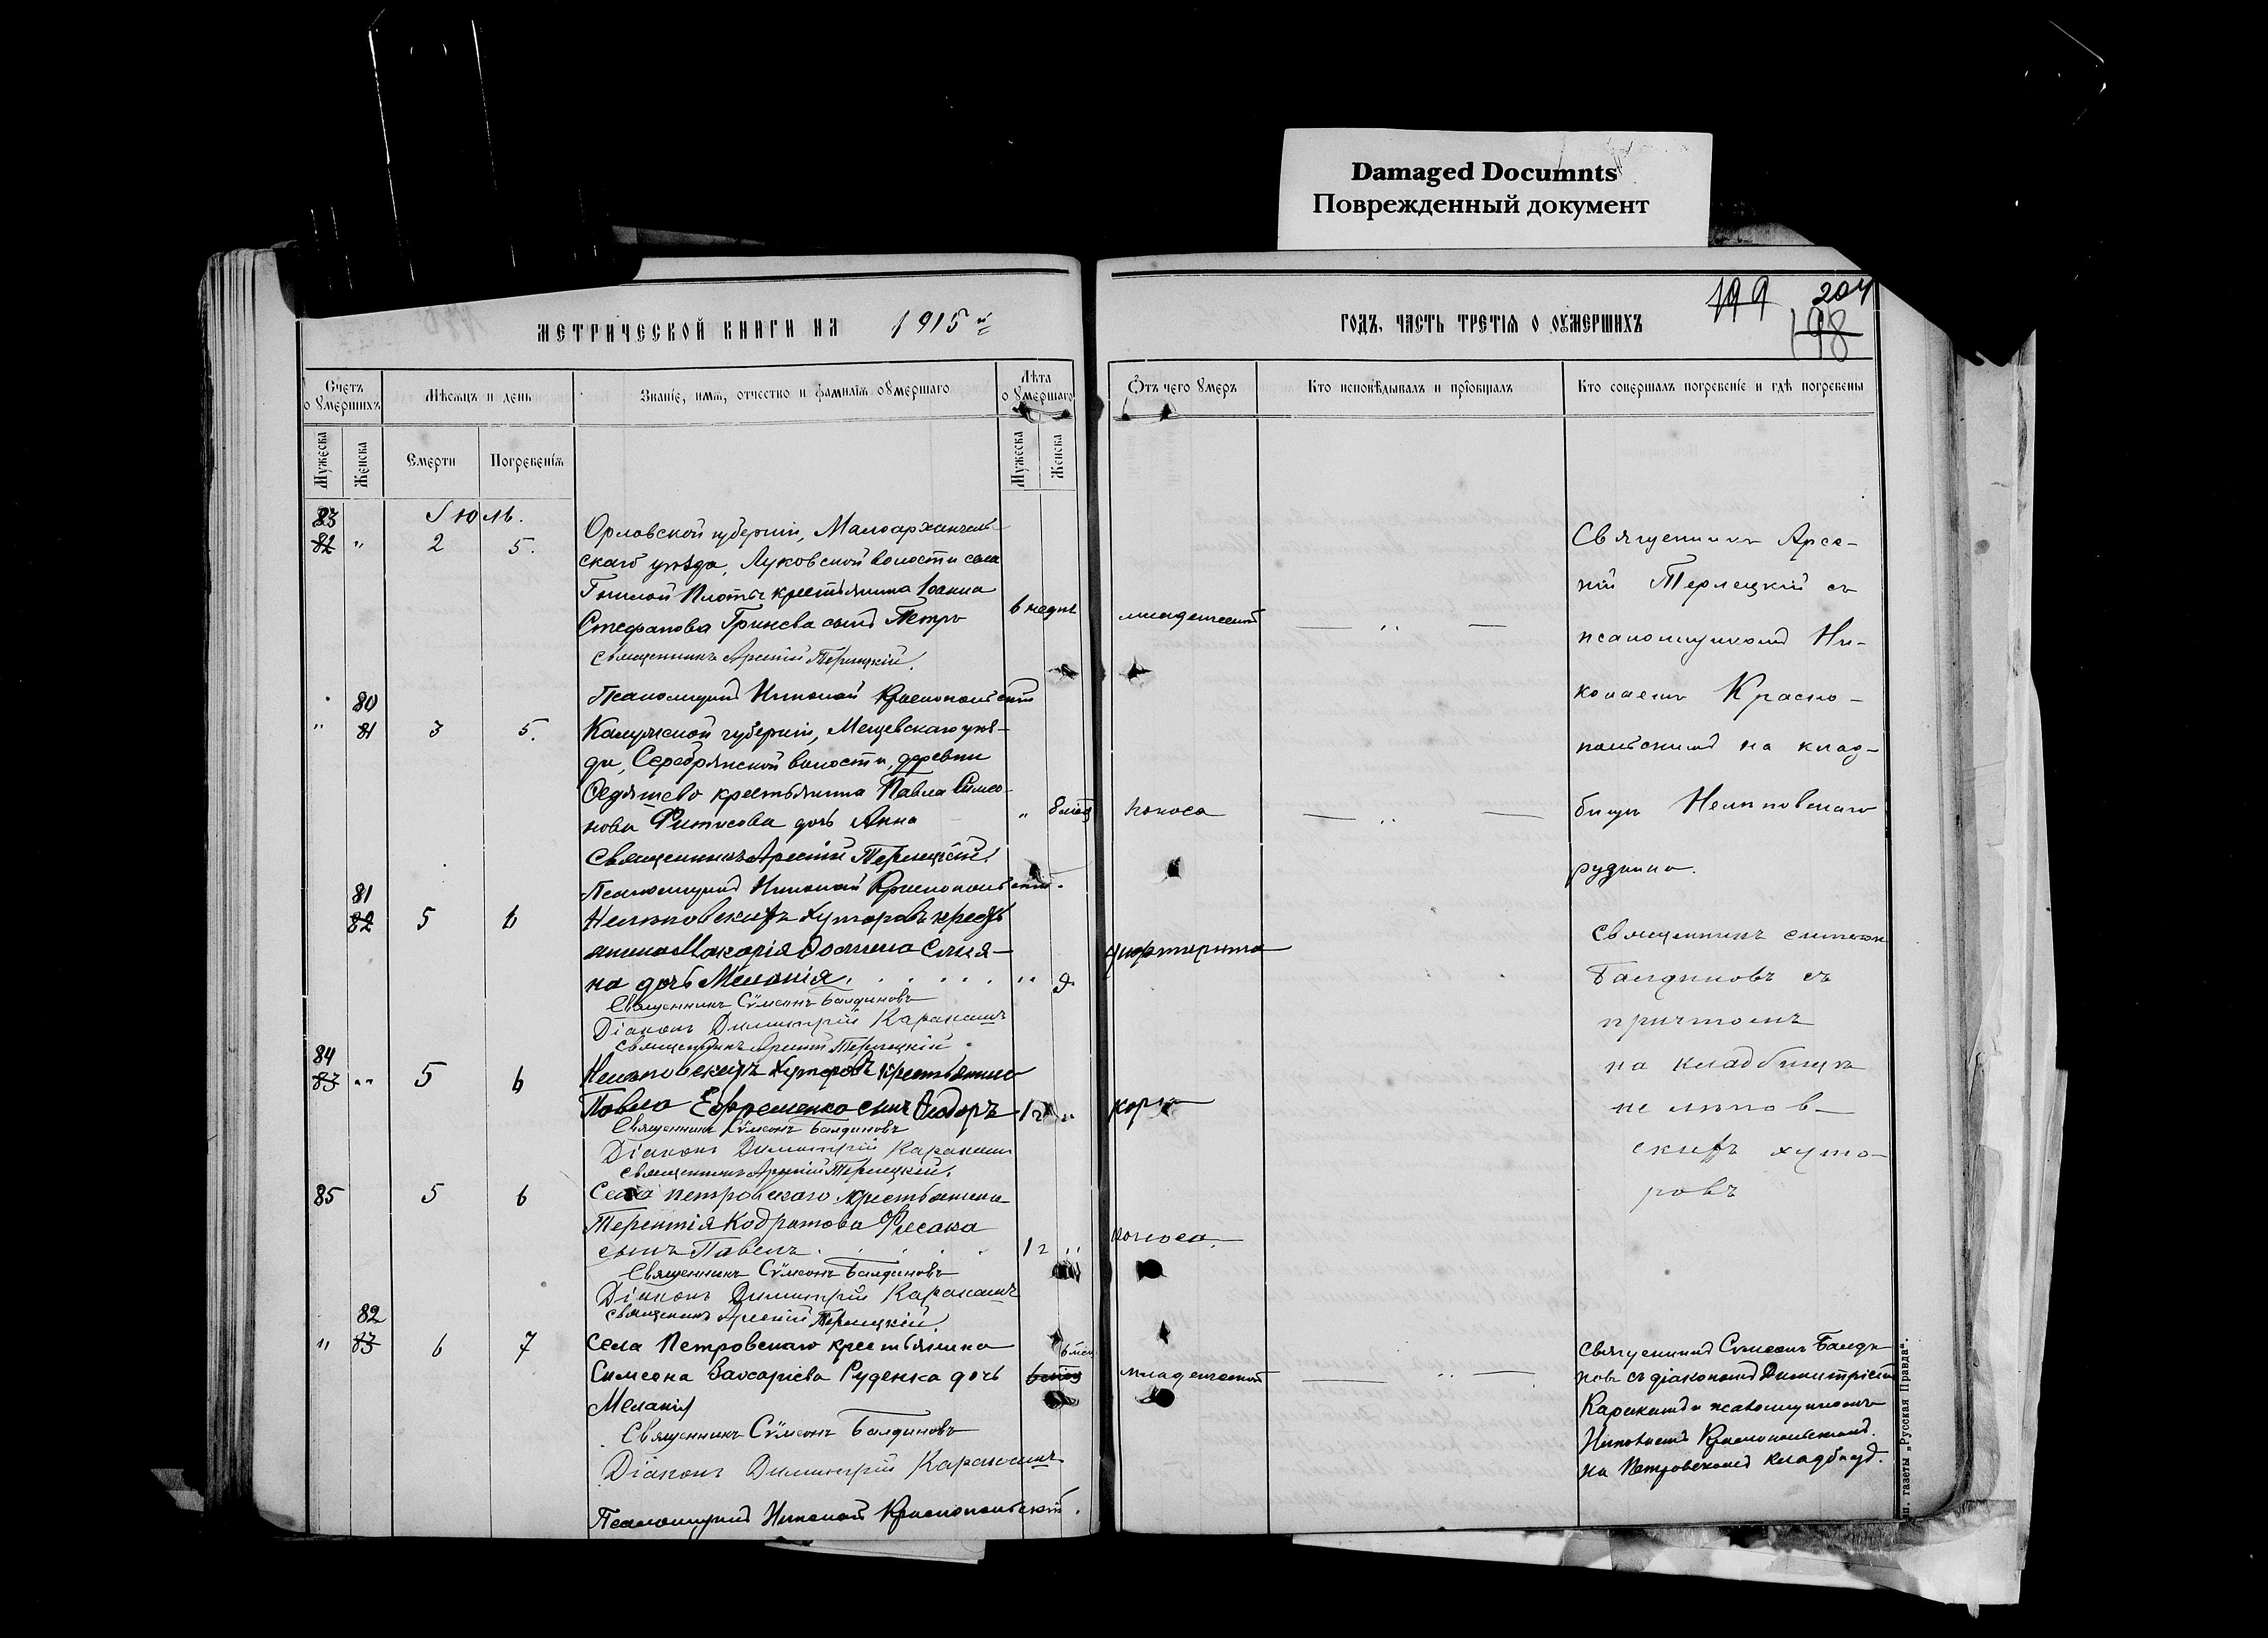 Damaged Documnts
Поврежденный документ
МЕТРИЧЕСКОЙ КНИГИ НА 1915 й
ГОДЪ, ЧАСТЬ ТРЕТІЯ О ОУМЕРШИХЪ
199 204
198
Счетъ о умершихъ
Мѣсяцъ и день
Званіе, имя, отчество и фамилія оумершаго
Лѣта оумершаго
Отъ чего умеръ
Кто исповѣдывалъ и пріобщалъ
Кто совершалъ погребеніе и гдѣ погребены
Мужеска
Женска
Смерти
Погребенія
Мужеска
Женска
Іюль.
83
82 " 2 5.
Орловской губерніи, Малоархангель-
скаго уѣзда, Луковской волости села
Гнилой Плоты крестьянина Іоанна
Стефанова Гринева сынъ Петръ
6 недѣль
младенческой
Священникъ Арсеній Терлецкій.
Псаломщикъ Николай Краснопольскій
Священникъ Арсе-
ній Терлецкій съ
псаломщикомъ Ни-
колаемъ Красно-
польскимъ на клад-
бищѣ Нелѣповскаго
рудника.
80
" 81 3 5.
Калужской губерніи, Мещевскаго уѣз-
да, Серебрянской волости, деревни
крестьянина Павла Симео-
нова дочь Анна
" 8 мѣс
поноса
Священникъ Арсеній Терлецкій.
Псаломщикъ Николай Краснопольскій.
81
82 5 6
Нелѣповскихъ хуторовъ кресть
янина Макарія
на дочь Меланія.
дифтерита
Священникъ Сѵмеонъ Балдиновъ
Діаконъ Димитрій Каракашъ
Священникъ Арсеній Терлецкій
Священникъ Симеон
Балдиновъ съ
причтомъ
на кладбищѣ
нелѣпов-
скихъ хуто-
ровъ
84
83 " 5 6
Нелѣповскихъ хуторовъ крестьянина
Павла Ефременко сынъ Ѳеодоръ
1 г "
кори
Священникъ Сѵмеонъ Балдиновъ
Діаконъ Димитрій Каракашъ
Священникъ Арсеній Терлецкій.
85 5 6
Села Петровскаго крестьянина
Терентія Кодратова
сынъ Павелъ
1 г "
поноса.
Священникъ Сѵмеонъ Балдиновъ
Діаконъ Димитрій Каракашъ
Священникъ Арсеній Терлецкій
82
" 83 6 7
Села Петровскаго крестьянина
Симеона Руденка дочь
Меланія
6 мѣс
младенческой
Священникъ Сѵмеонъ Балдиновъ
Діаконъ Димитрій Каракашъ
Псаломщикъ Николай Краснопольскій.
Священникъ Симеонъ Балди
новъ съ діакономъ Димитріемъ
Каракашъ и псаломщикомъ
Николаемъ Краснопольскимъ.
на Петровскомъ кладбищѣ.
газеты „Русская Правда“.